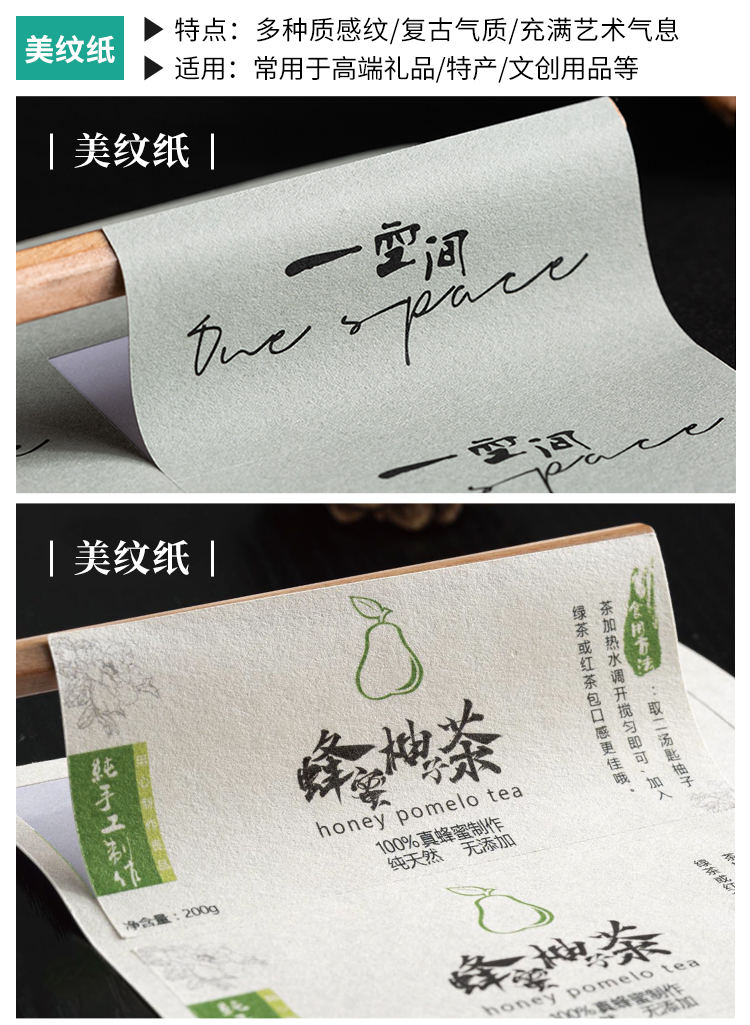 美纹纸
▶ 特点：多种质感纹/复古气质/充满艺术气息
▶ 适用：常用于高端礼品/特产/文创用品等
| 美纹纸 |
一空间
One space
一空间
space
| 美纹纸 |
食用方法
：取二汤匙柚子
茶加热水调开搅匀即可，加入
绿茶或红茶包口感更佳哦。
蜂蜜柚子茶
honey pomelo tea
100%真蜂蜜制作
纯天然 无添加
纯手工制作
净含量：200g
绿茶或红
蜂蜜柚子茶
honey pomelo tea
100%真蜂蜜制作
纯天然 无添加
纯手